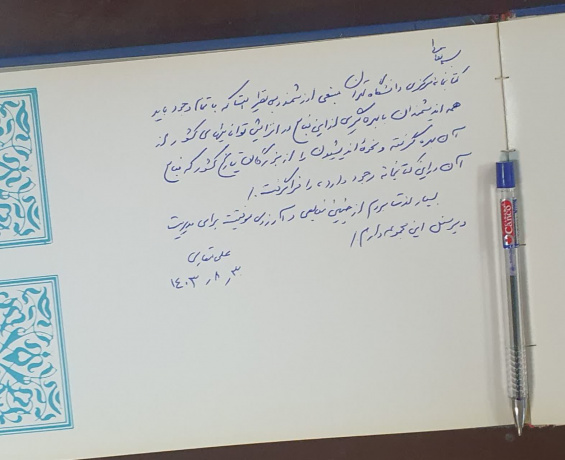 بسمه تعالی
کتابخانه مرکزی دانشگاه تهران منبعی ارزشمند و بی نظیر است که با تمام وجود باید
همه اندیشمندان با بهره گیری از این منابع در افزایش توانایی های کشور از
آن بهره گرفته و نحوه اندیشیدن را از بزرگان تاریخ کشور که منابع
آن در این کتابخانه وجود دارد، را فرا گرفت.
بسیار لذت بردم از چنین فضایی و آرزوی موفقیت برای مدیریت
و پرسنل این مجموعه دارم
علی
۱۴۰۳،۸،۳
CANCO